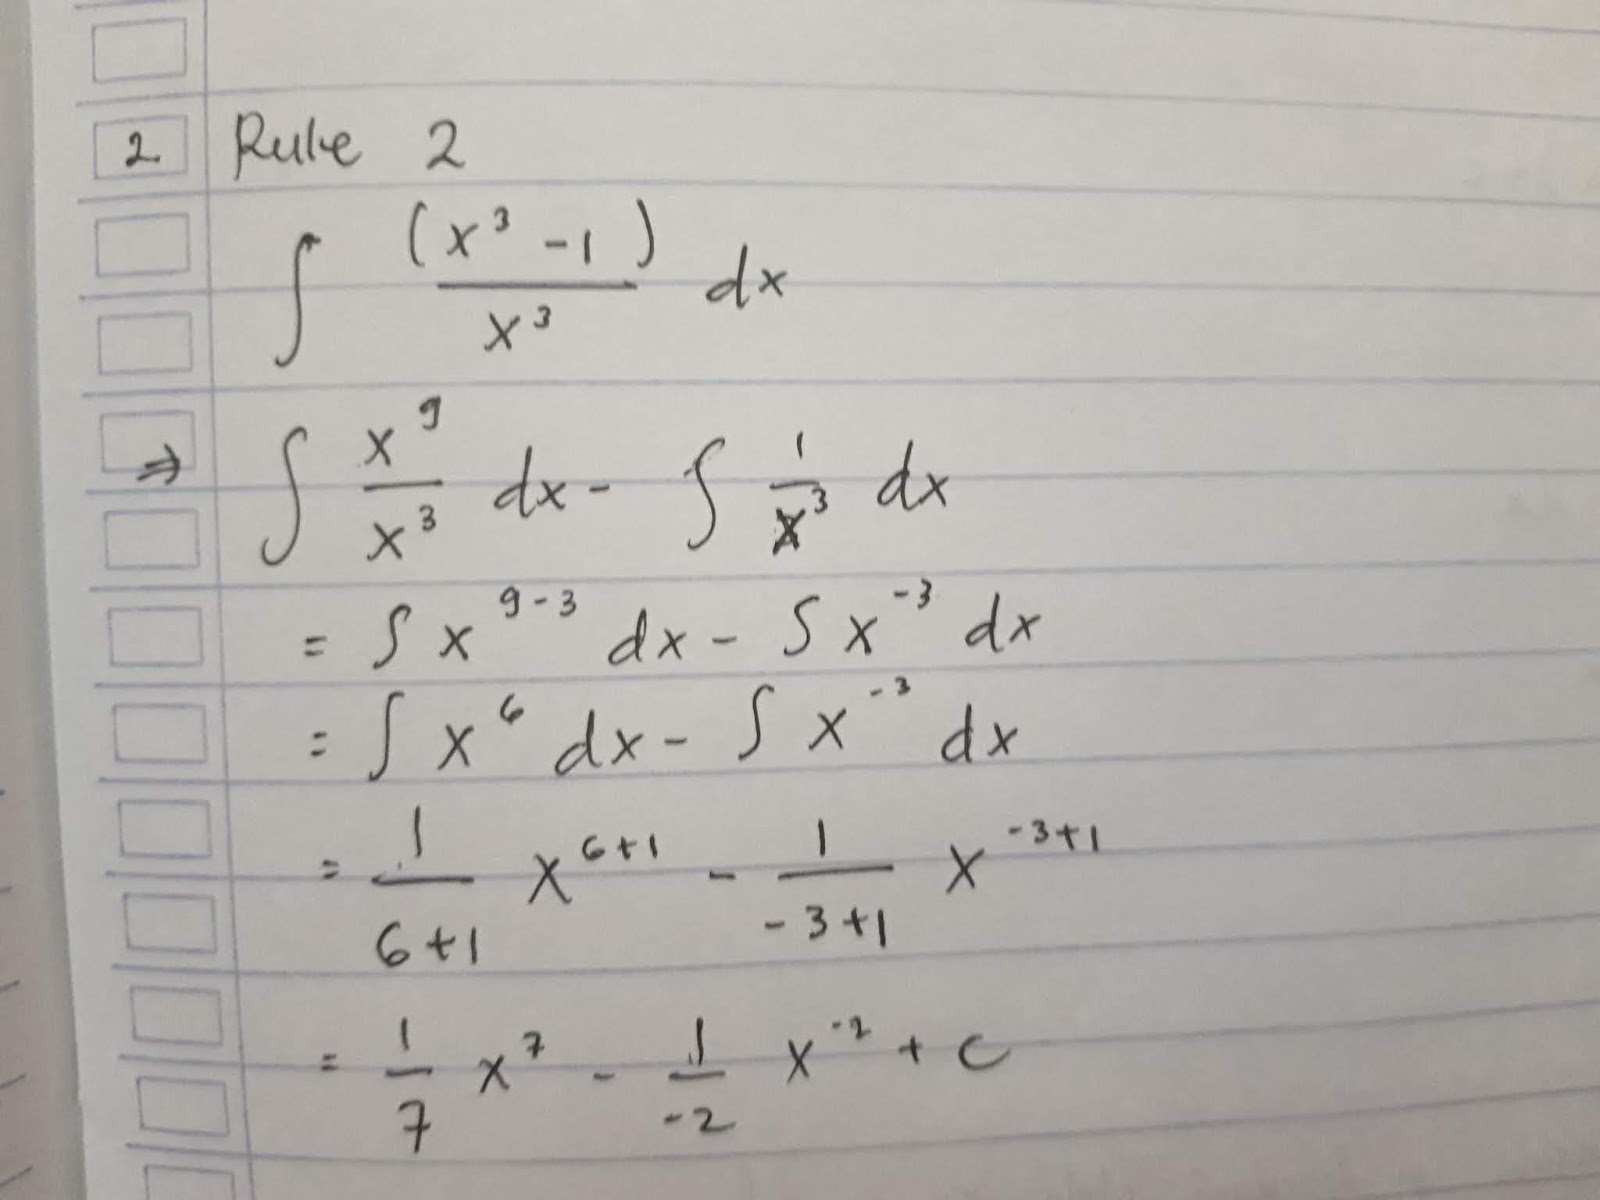 2 Rule 2
∫ (x³ - 1) / x³ dx
⇒ ∫ x⁹ / x³ dx - ∫ 1 / x³ dx
= ∫ x⁹⁻³ dx - ∫ x⁻³ dx
= ∫ x⁶ dx - ∫ x⁻³ dx
= 1 / (6+1) x⁶⁺¹ - 1 / (-3+1) x⁻³⁺¹
= 1/7 x⁷ - 1/-2 x⁻² + c